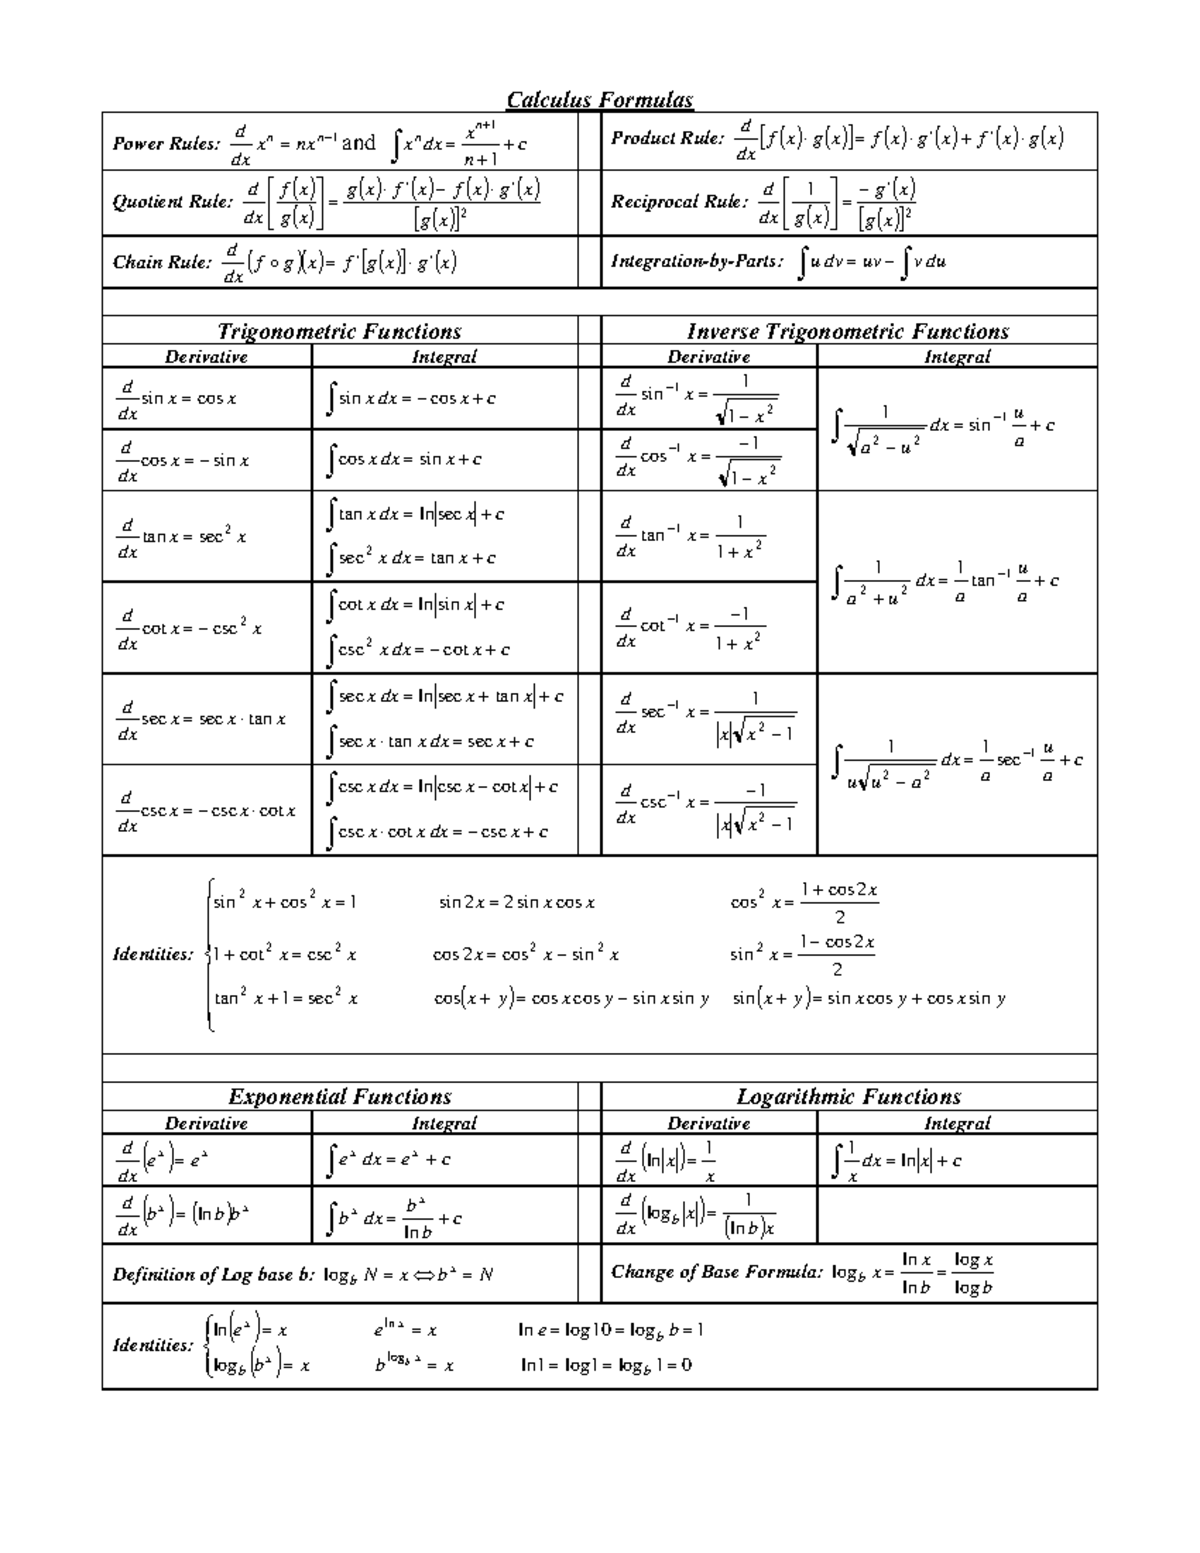 Calculus Formulas
Power Rules: d/dx xⁿ = nxⁿ⁻¹ and ∫xⁿ dx = xⁿ⁺¹/(n+1) + c
Product Rule: d/dx [f(x)·g(x)] = f(x)·g'(x) + f'(x)·g(x)
Quotient Rule: d/dx [f(x)/g(x)] = (g(x)·f'(x) − f(x)·g'(x))/[g(x)]²
Reciprocal Rule: d/dx [1/g(x)] = −g'(x)/[g(x)]²
Chain Rule: d/dx (f ∘ g)(x) = f'[g(x)]·g'(x)
Integration-by-Parts: ∫u dv = uv − ∫v du
Trigonometric Functions
Derivative Integral
d/dx sin x = cos x
∫sin x dx = − cos x + c
d/dx cos x = − sin x
∫cos x dx = sin x + c
d/dx tan x = sec² x
∫tan x dx = ln|sec x| + c
∫sec² x dx = tan x + c
d/dx cot x = − csc² x
∫cot x dx = ln|sin x| + c
∫csc² x dx = − cot x + c
d/dx sec x = sec x · tan x
∫sec x dx = ln|sec x + tan x| + c
∫sec x · tan x dx = sec x + c
d/dx csc x = − csc x · cot x
∫csc x dx = ln|csc x − cot x| + c
∫csc x · cot x dx = − csc x + c
Inverse Trigonometric Functions
Derivative Integral
d/dx sin⁻¹ x = 1/√(1 − x²)
d/dx cos⁻¹ x = −1/√(1 − x²)
∫1/√(a² − u²) dx = sin⁻¹ u/a + c
d/dx tan⁻¹ x = 1/(1 + x²)
d/dx cot⁻¹ x = −1/(1 + x²)
∫1/(a² + u²) dx = 1/a tan⁻¹ u/a + c
d/dx sec⁻¹ x = 1/(|x|√(x² − 1))
d/dx csc⁻¹ x = −1/(|x|√(x² − 1))
∫1/(u√(u² − a²)) dx = 1/a sec⁻¹ u/a + c
Identities:
sin² x + cos² x = 1 sin 2x = 2 sin x cos x cos² x = (1 + cos 2x)/2
1 + cot² x = csc² x cos 2x = cos² x − sin² x sin² x = (1 − cos 2x)/2
tan² x + 1 = sec² x cos(x + y) = cos x cos y − sin x sin y sin(x + y) = sin x cos y + cos x sin y
Exponential Functions
Derivative Integral
d/dx (eˣ) = eˣ
∫eˣ dx = eˣ + c
d/dx (bˣ) = (ln b)bˣ
∫bˣ dx = bˣ/ln b + c
Logarithmic Functions
Derivative Integral
d/dx (ln|x|) = 1/x
∫1/x dx = ln|x| + c
d/dx (log_b |x|) = 1/((ln b)x)
Definition of Log base b: log_b N = x ⇔ bˣ = N
Change of Base Formula: log_b x = ln x/ln b = log x/log b
Identities:
ln(eˣ) = x e^(ln x) = x ln e = log10 = log_b b = 1
log_b (bˣ) = x b^(log_b x) = x ln1 = log1 = log_b 1 = 0